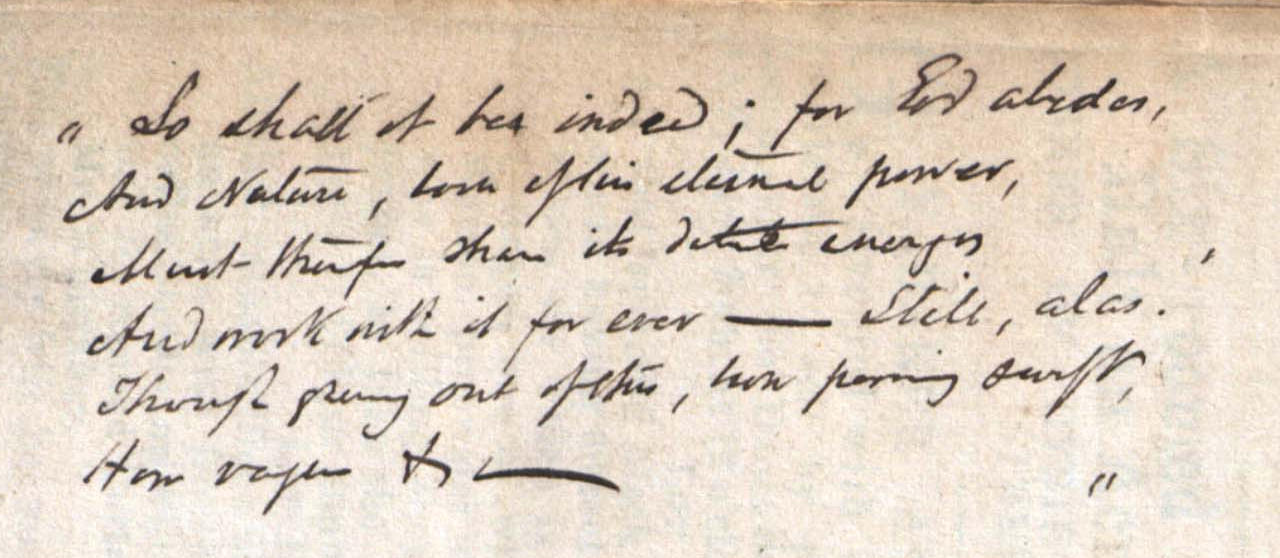 " So shall it be indeed ; for God abides,
And Nature, born of his eternal power,
Must therefore share its energies
And work with it for ever — Still, alas.
Though out of this, how swift,
How vague &c — "